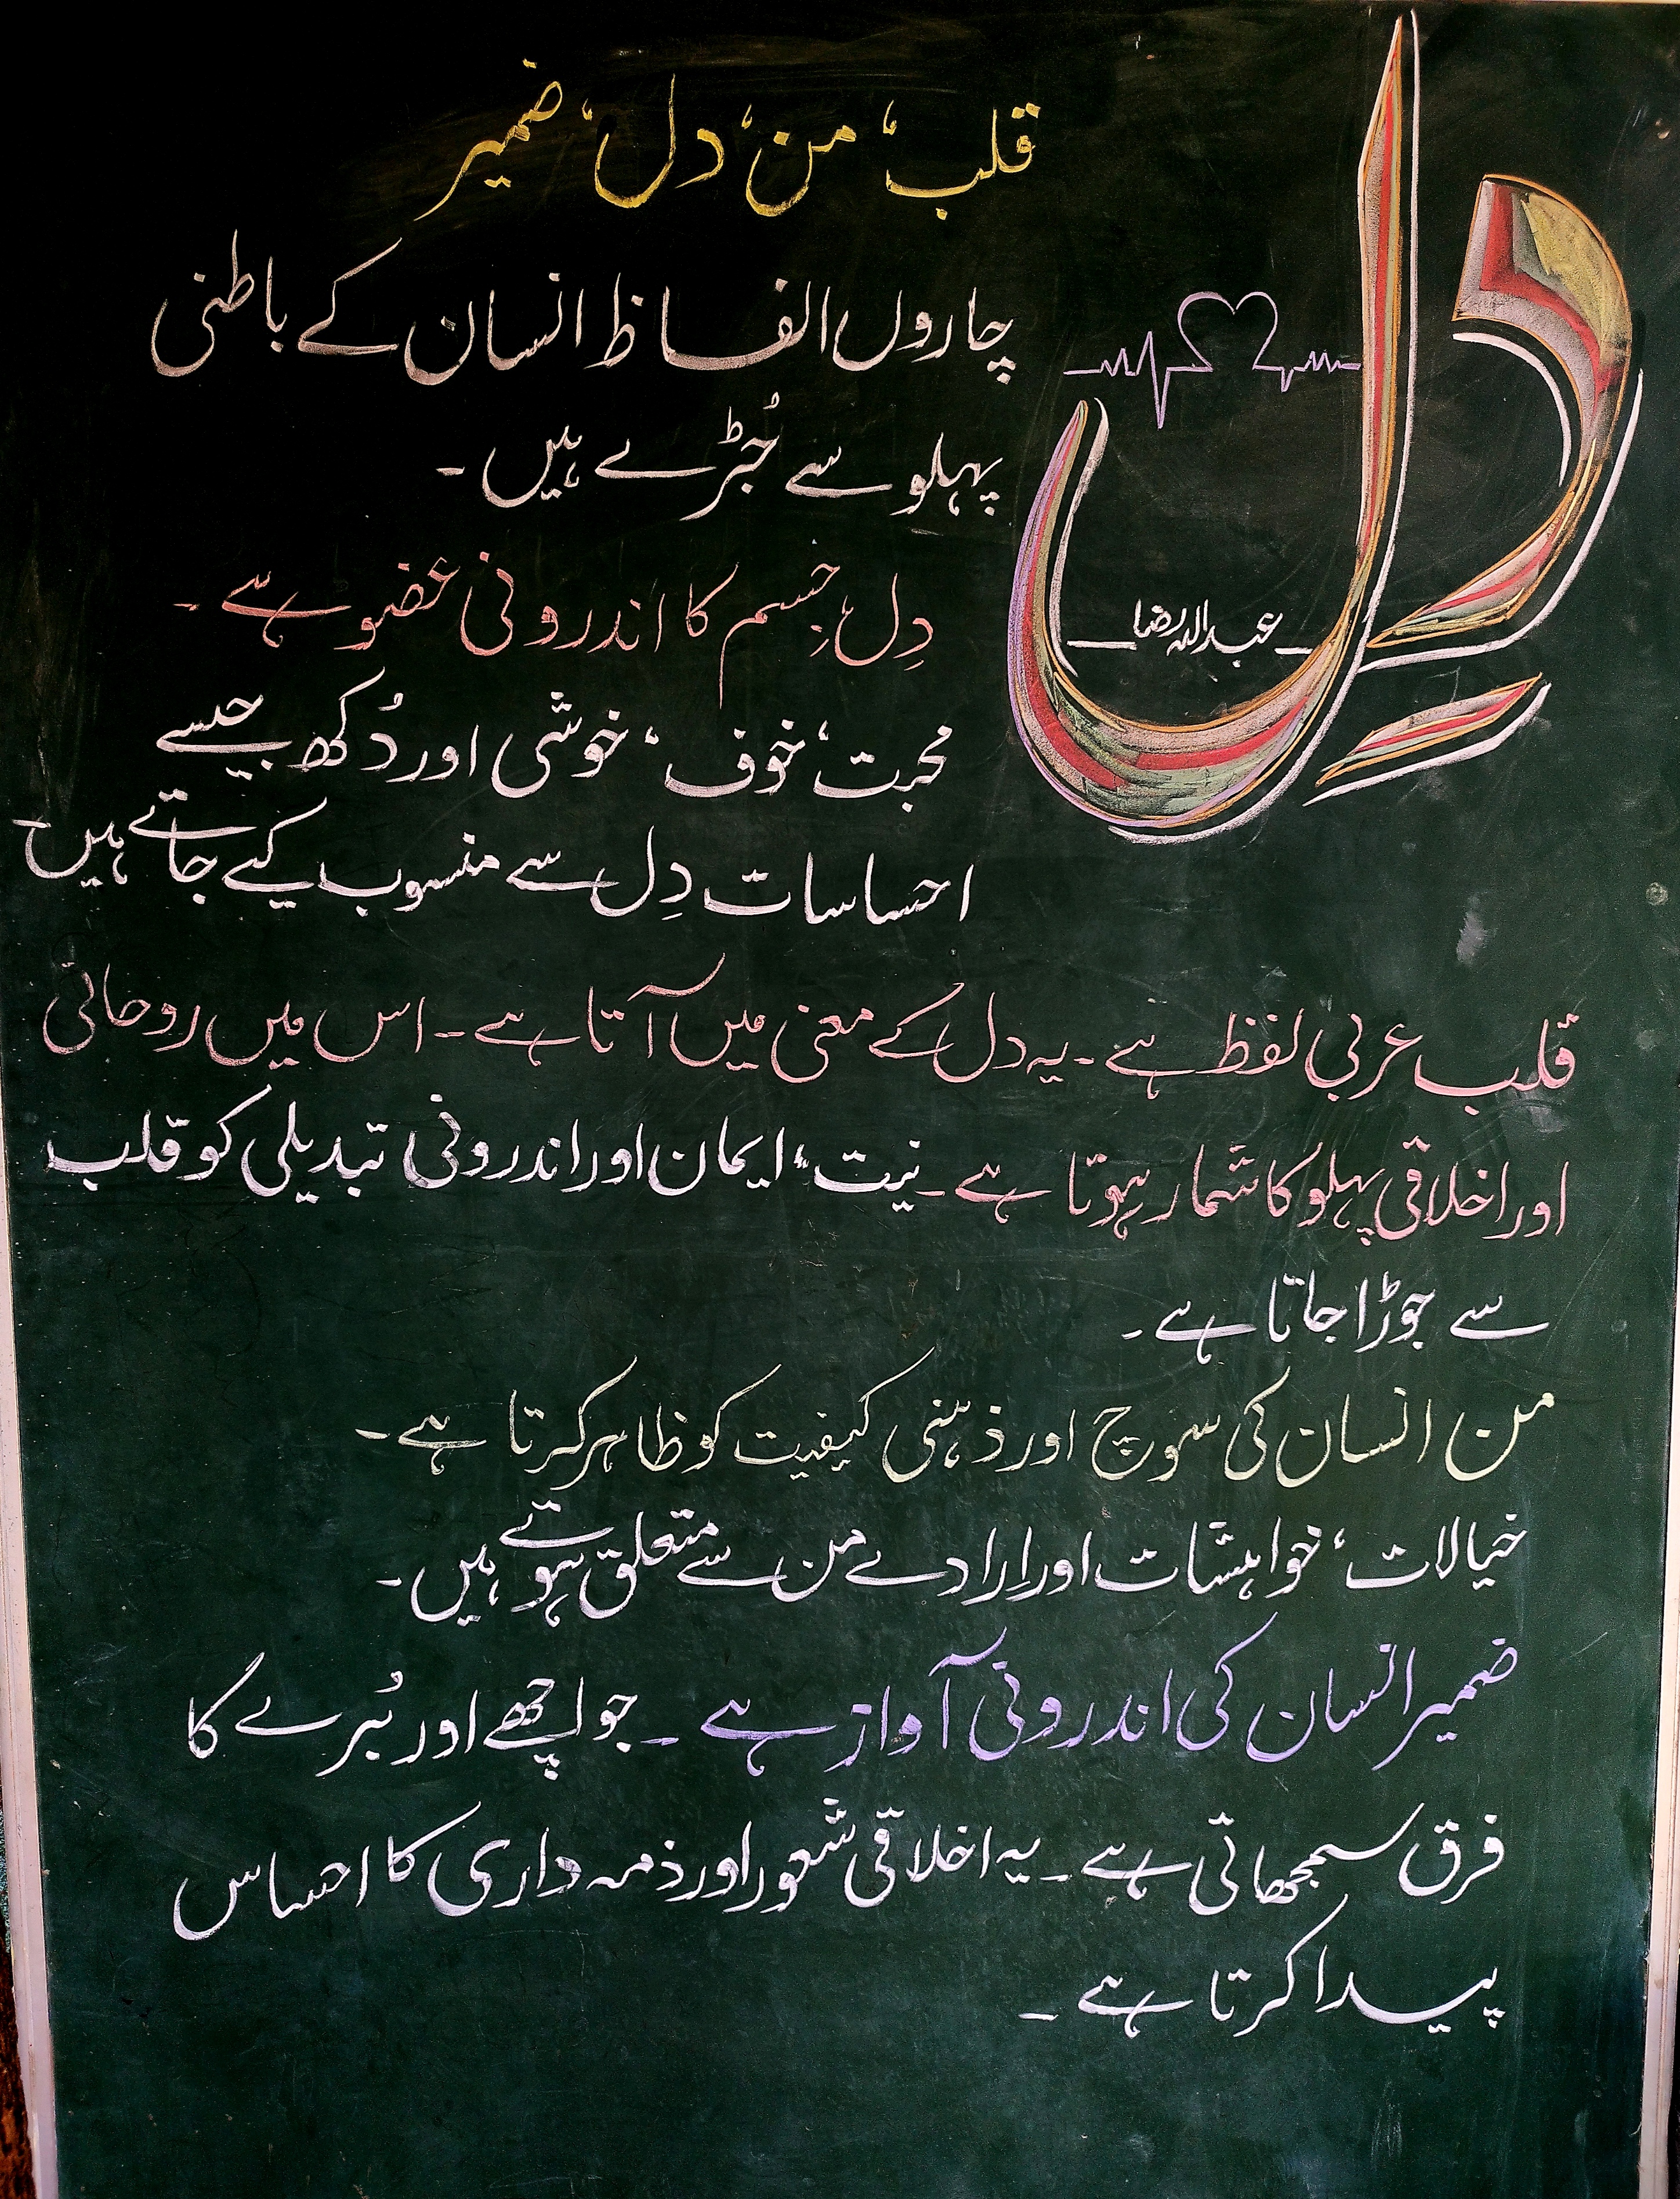 دِل
عبداللہ رضا
قلب، من، دل، ضمیر
چاروں الفاظ انسان کے باطنی
پہلو سے جُڑے ہیں۔
دِل، جِسم کا اندرونی عضو ہے۔
محبت، خوف، خوشی اور دُکھ جیسے
احساسات دِل سے منسوب کیے جاتے ہیں۔
قلب عربی لفظ ہے۔ یہ دل کے معنی میں آتا ہے۔ اس میں روحانی
اور اخلاقی پہلو کا شمار ہوتا ہے۔ نیت، ایمان اور اندرونی تبدیلی کو قلب
سے جوڑا جاتا ہے۔
من انسان کی سوچ اور ذہنی کیفیت کو ظاہر کرتا ہے۔
خیالات، خواہشات اور اِرادے من سے متعلق ہوتے ہیں۔
ضمیر انسان کی اندرونی آواز ہے۔ جو اچھے اور بُرے کا
فرق سمجھاتی ہے۔ یہ اخلاقی شعور اور ذمہ داری کا احساس
پیدا کرتا ہے۔